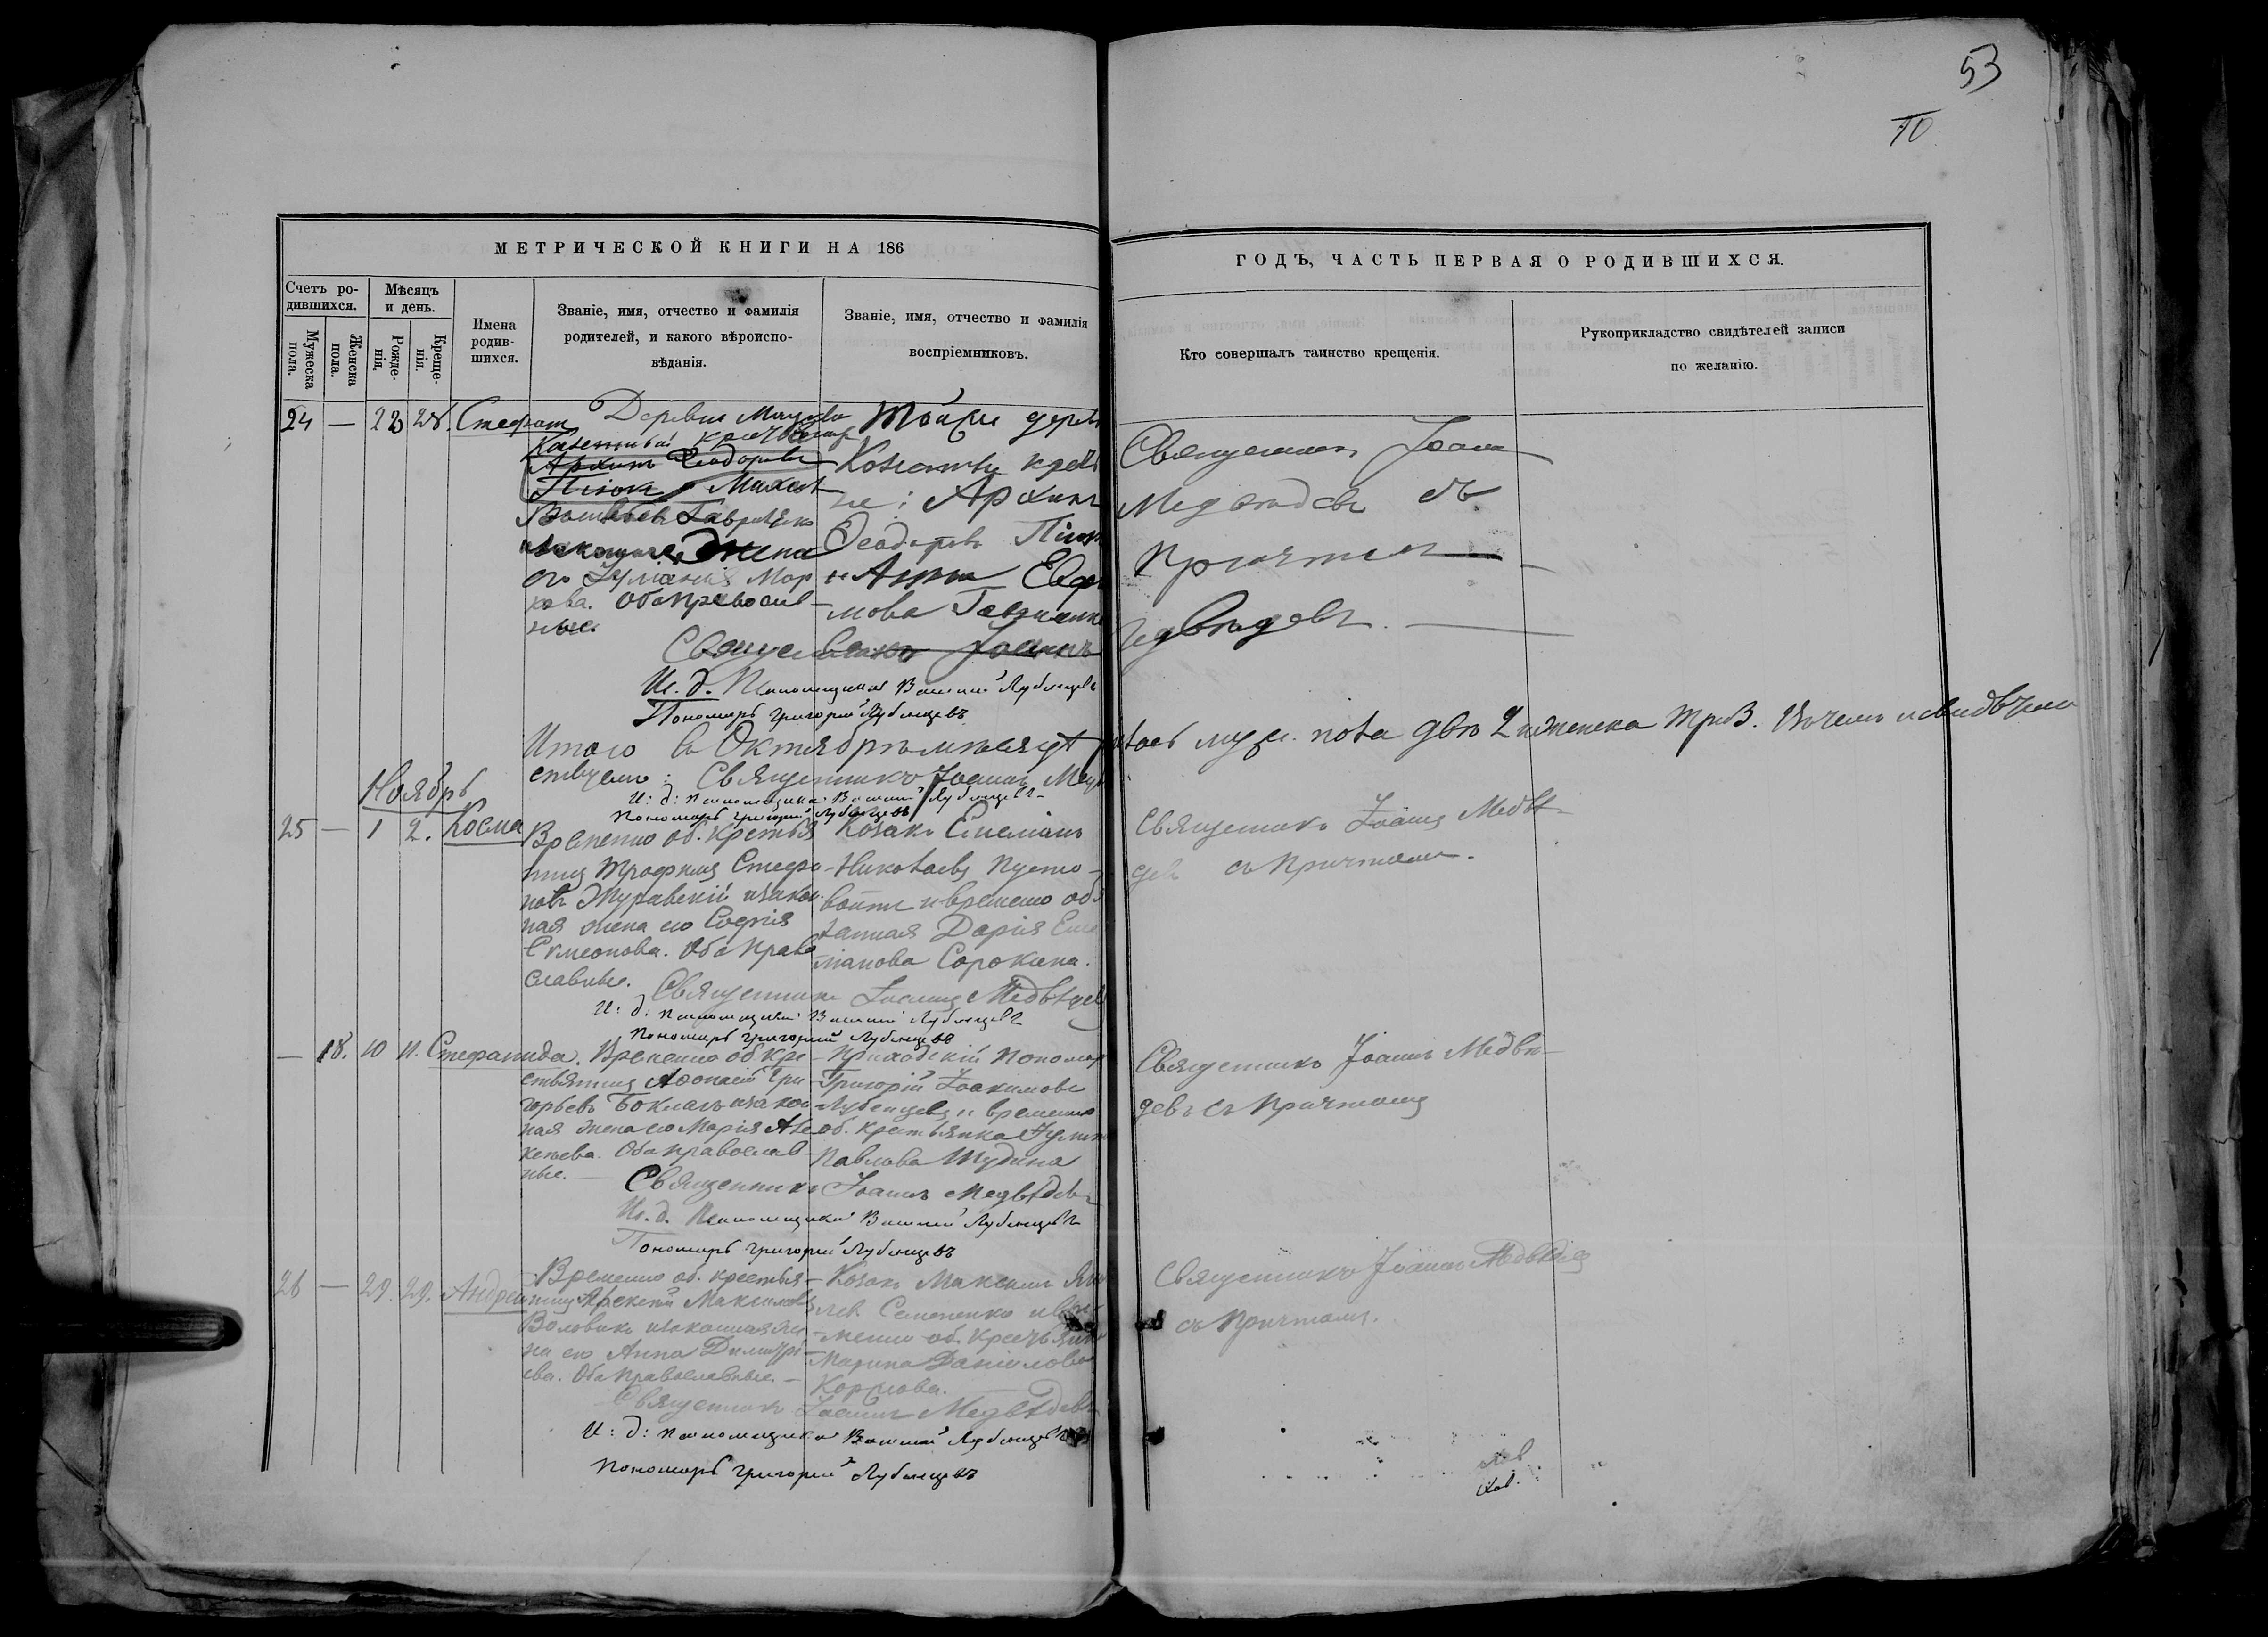 53
10
МЕТРИЧЕСКОЙ КНИГИ НА 186
ГОДЪ, ЧАСТЬ ПЕРВАЯ О РОДИВШИХСЯ.
Счетъ родившихся.
Мужеска пола.
Женска пола.
Мѣсяцъ и день.
Рожденія.
Крещенія.
Имена родившихся.
Званіе, имя, отчество и фамилія
родителей, и какого вѣроиспо-
вѣданія.
Званіе, имя, отчество и фамилія
воспріемниковъ.
Кто совершалъ таинство крещенія.
Рукоприкладство свидѣтелей записи
по желанію.
24 — 23 28. Стефанъ
Деревни
Архипъ Ѳеодоровъ
Пінок
жена
его Іуліанія Мар
кова. Оба православ-
ные.
Той же дерев
не: Архипъ
Ѳеодоровъ Пінок
и Анна Евфи
мова
Священникъ Іоаннъ
Медвѣдевъ съ
причтомъ
Священникъ Іоаннъ Медвѣдевъ.
И. д. Псаломщика Василій Лубенцевъ
Пономарь Григорій Лубенцевъ
Итого въ Октябрѣ мѣсяцѣ родилось муж. пола два 2 и женска три 3. Въ чемъ и свидѣтель
ствуемъ: Священникъ Іоаннъ Мед
И: д: Псаломщика Василій Лубенцевъ
Пономарь Григорій Лубенцевъ
Ноябрь
25 — 1 2. Косма
Временно об. крестья
нинъ Трофимъ Стефа-
новъ Журавскій и закон-
ная жена его Софія
Симеонова. Оба право
славные.
Козакъ Емеліанъ
Николаевъ Пусто-
войтъ и временно обя
занная Дарія Еме
ліанова Сорокина.
Священникъ Іоаннъ Медвѣ-
девъ съ причтомъ.
Священникъ Іоаннъ Медвѣдев
И: д: Псаломщика Василій Лубенцевъ
Пономарь Григорій Лубенцевъ
— 18. 10 11. Стефанида.
Временно об. кре-
стьянинъ Аѳонасій Гри-
горьевъ и закон-
ная жена его Марія Але
ксѣева. Оба православ-
ные.
Приходскій пономар
Григорій Іоакимовъ
Лубенцевъ и временно
об. крестьянка
Павлова Шудина
Священникъ Іоаннъ Медвѣ-
девъ съ причтомъ
Священникъ Іоаннъ Медвѣдевъ
И. д. Псаломщика Василій Лубенцевъ
Пономарь Григорій Лубенцевъ
26 — 29. 29. Андрей
Временно об. крестья-
нинъ Максимовъ
Воловикъ и законная же
на его Анна Димитрі-
ева. Оба православные.—
Козакъ Максимъ Яко
влев Семененко и вре
менно об. крестьянка
Марина Даніилова
Священникъ Іоаннъ Медвѣдев
съ причтомъ.
Священникъ Іоаннъ Медвѣдевъ
И: д: Псаломщика Василій Лубенцевъ
Пономарь Григорій Лубенцевъ